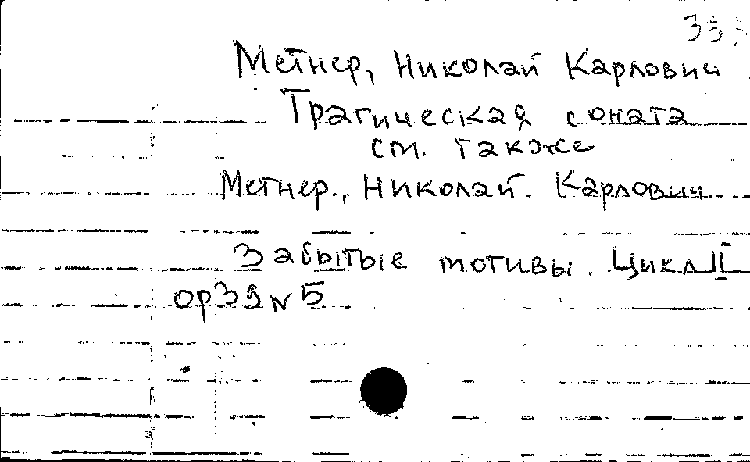 Метнер, Николай Карлович
Трагическая соната
см. также
Метнер., Николай. Карлович
Забытые мотивы. Цикл II
ор 39 N 5